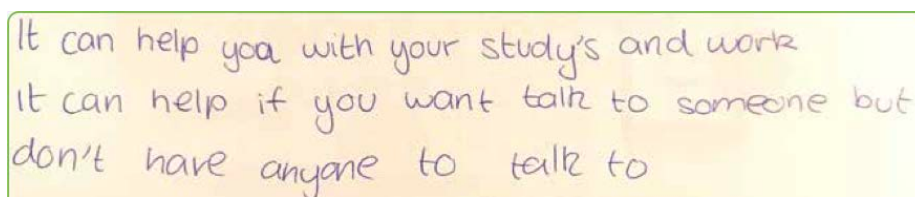 It can help you with your study's and work
It can help if you want talk to someone but
don't have anyone to talk to